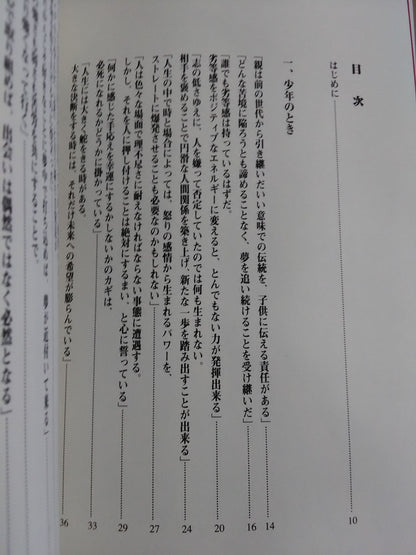 目　次
はじめに 10
一、少年のとき
「親は前の世代から引き継いだいい意味での伝統を、子供に伝える責任がある」 14
「どんな苦境に陥ろうとも諦めることなく、夢を追い続けることを受け継いだ」 16
「誰でも劣等感は持っているはずだ。
劣等感をポジティブなエネルギーに変えると、とんでもない力が発揮出来る」 20
「志の低さゆえに、人を嫌って否定していたのでは何も生まれない。
相手を褒めることで円滑な人間関係を築き上げ、新たな一歩を踏み出すことが出来る」 24
「人生の中で時と場合によっては、怒りの感情から生まれるパワーを、
ストレートに爆発させることも必要なのかもしれない」 27
「人は色々な場面で理不尽さに耐えなければならない事態に遭遇する。
しかし、それを人に押し付けることは絶対にするまい、と心に誓っている」 29
「何かに感じた手応えを幸運にするかしないかのカギは、
必死になれるかどうかに掛かっている」 33
「人生には大きく舵をきる時がある。
大きな決断をする時には、それだけ未来への希望が膨らんでいる」 36
夢が近付いて来る」
なって行く」
取り組めば、出会いは偶然ではなく必然となる」